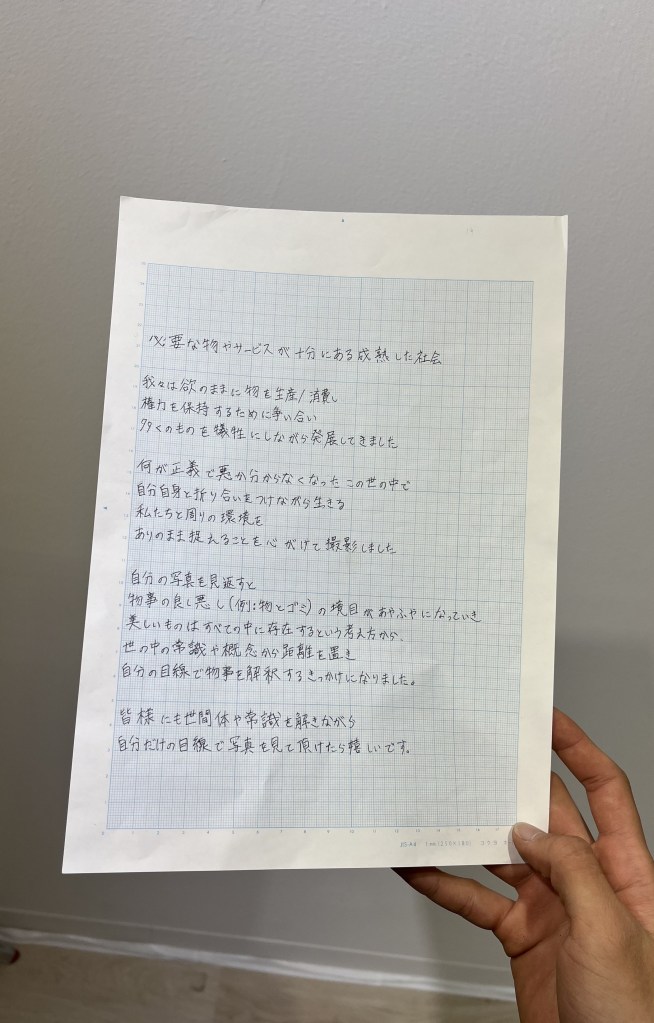 必要な物やサービスが十分にある成熟した社会
我々は欲のままに物を生産/消費し
権力を保持するために争い合い
多くのものを犠牲にしながら発展してきました
何が正義で悪か分からなくなったこの世の中で
自分自身と折り合いをつけながら生きる
私たちと周りの環境を
ありのまま捉えることを心がけて撮影しました
自分の写真を見返すと
物事の良し悪し(例:物とゴミ)の境目があやふやになっていき
美しいものはすべての中に存在するという考え方から、
世の中の常識や概念から距離を置き
自分の目線で物事を解釈するきっかけになりました。
皆様にも世間体や常識を解きながら
自分だけの目線で写真を見て頂けたら嬉しいです。